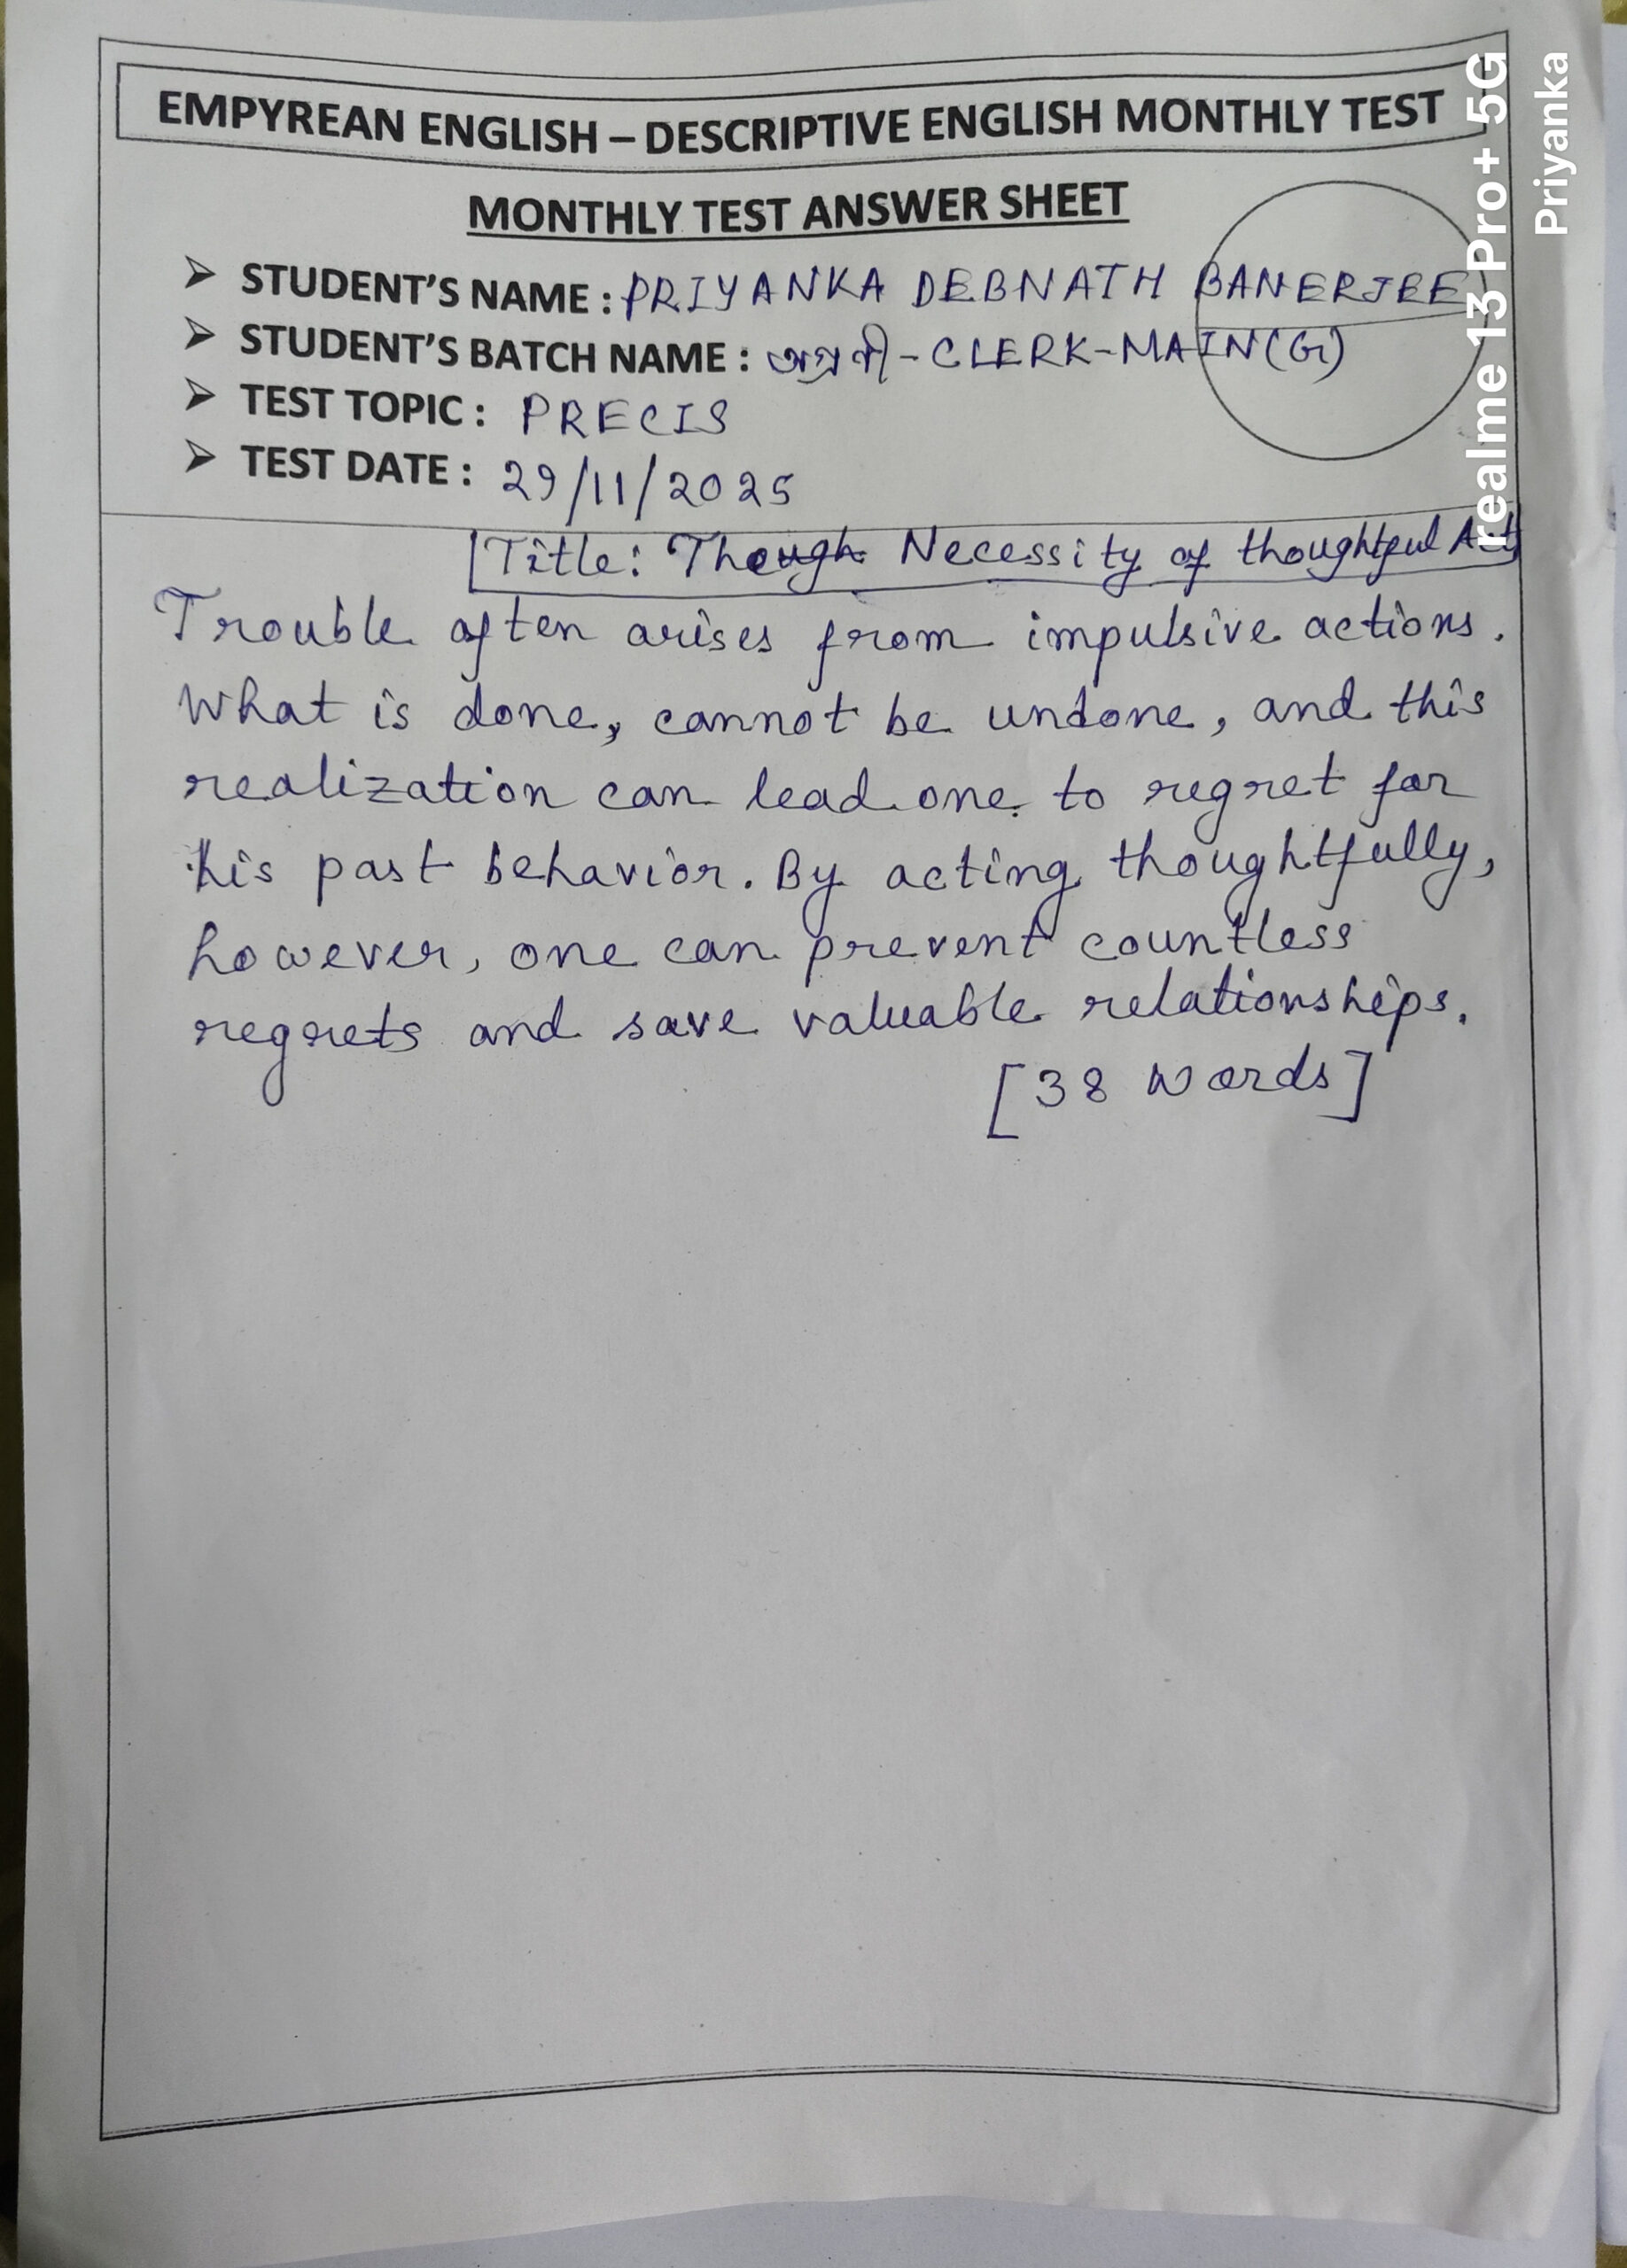 EMPYREAN ENGLISH – DESCRIPTIVE ENGLISH MONTHLY TEST
MONTHLY TEST ANSWER SHEET
➢ STUDENT'S NAME : PRIYANKA DEBNATH BANERJEE
➢ STUDENT'S BATCH NAME : অগ্রণী - CLERK-MAIN(G)
➢ TEST TOPIC : PRECIS
➢ TEST DATE : 29/11/2025
Title: Though Necessity of thoughtful
Trouble often arises from impulsive actions.
What is done, cannot be undone, and this
realization can lead one to regret for
his past behavior. By acting thoughtfully,
however, one can prevent countless
regrets and save valuable relationships.
[38 words]
realme 13 Pro+ 5G
Priyanka